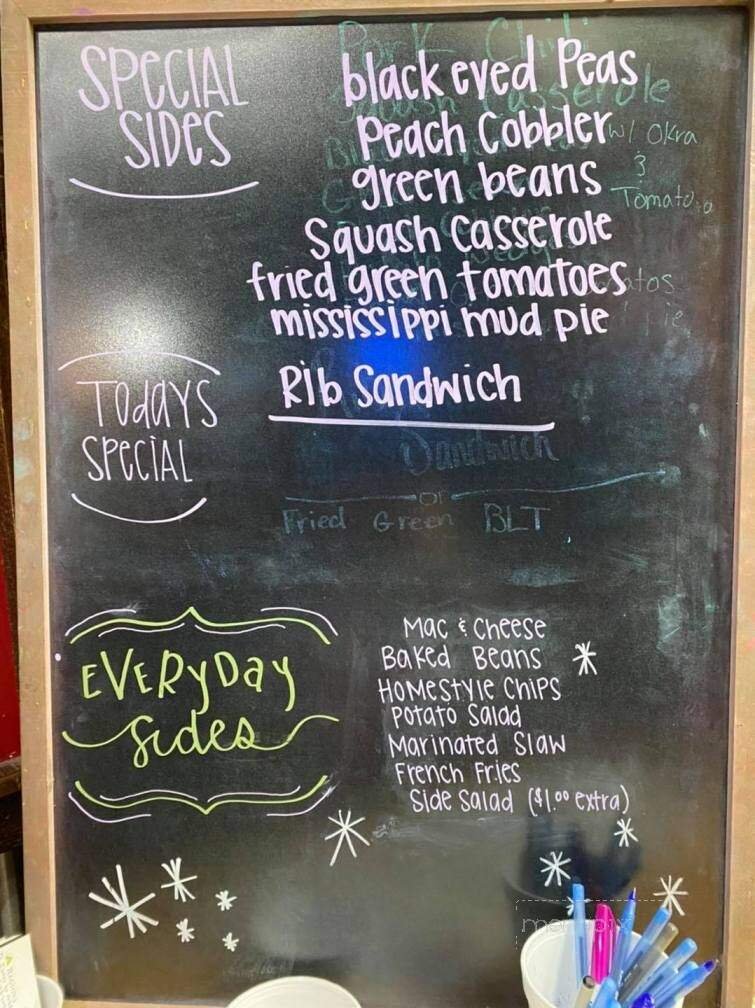 SPECIAL
SIDES
black eyed Peas
Peach Cobbler
w/ Okra
&
green beans
Tomato
Squash Casserole
fried green tomatoes
mississippi mud pie
TODAYS
SPECIAL
Rib Sandwich
Sandwich
or
Fried Green BLT
EVERYDAY
Sides
Mac & Cheese
Baked Beans
Homestyle Chips
Potato Salad
Marinated Slaw
French Fries
Side Salad ($1.00 extra)